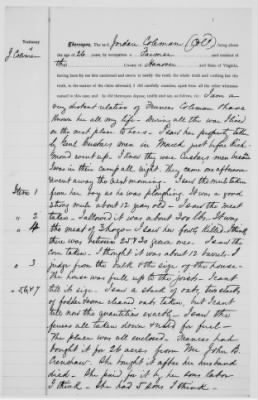 Testimony
of
J Coleman
Thereupon, The said Jordan Coleman (Col'd) being above
the age of 26 years, by occupation a Farmer and resident of
this County of Hanover and State of Virginia,
having been by me first cautioned and sworn to testify the truth, the whole truth and nothing but the
truth, in the matter of the claim aforesaid, I did carefully examine, apart from all the other witnesses
named in this case, and he did thereupon depose, testify and say, as follows: I am a
very distant relation of Frances Coleman & have
known her all my life. During all the war I lived
on the next place to hers. I saw her property taken
by Genl Custers men in March just before Rich-
mond went up. I knew they were Custers men because
I was in their camp all night. They came one afternoon
& went away the next morning. I saw the mule taken
Item 1 from her boy as he was ploughing. It was a good
strong mule about 12 years old. I saw the meat
" 2 taken. I allowed it was about 300 lbs. It was
" 4 the meat of 3 hogs. I saw her fowls killed. I think
there was between 25 & 30 grown ones. I saw the
corn taken. I thought it was about 12 barrels I
" 3 judge from the bulk & the size of the house.
The house was full up to the joist. I cant
tell its size. I saw a stack of oats, two stacks
" 5, 6 & 7 of fodder & some cleaned oats taken, but I cant
tell now the quantities exactly. I saw the
fences all taken down & used for fuel.
The place was all enclosed. Frances had
bought it for 26 acres from Mr John B.
Crenshaw. She bought it after her husband
died. She paid for it by her sons labor
I think. She had 5 sons I think.